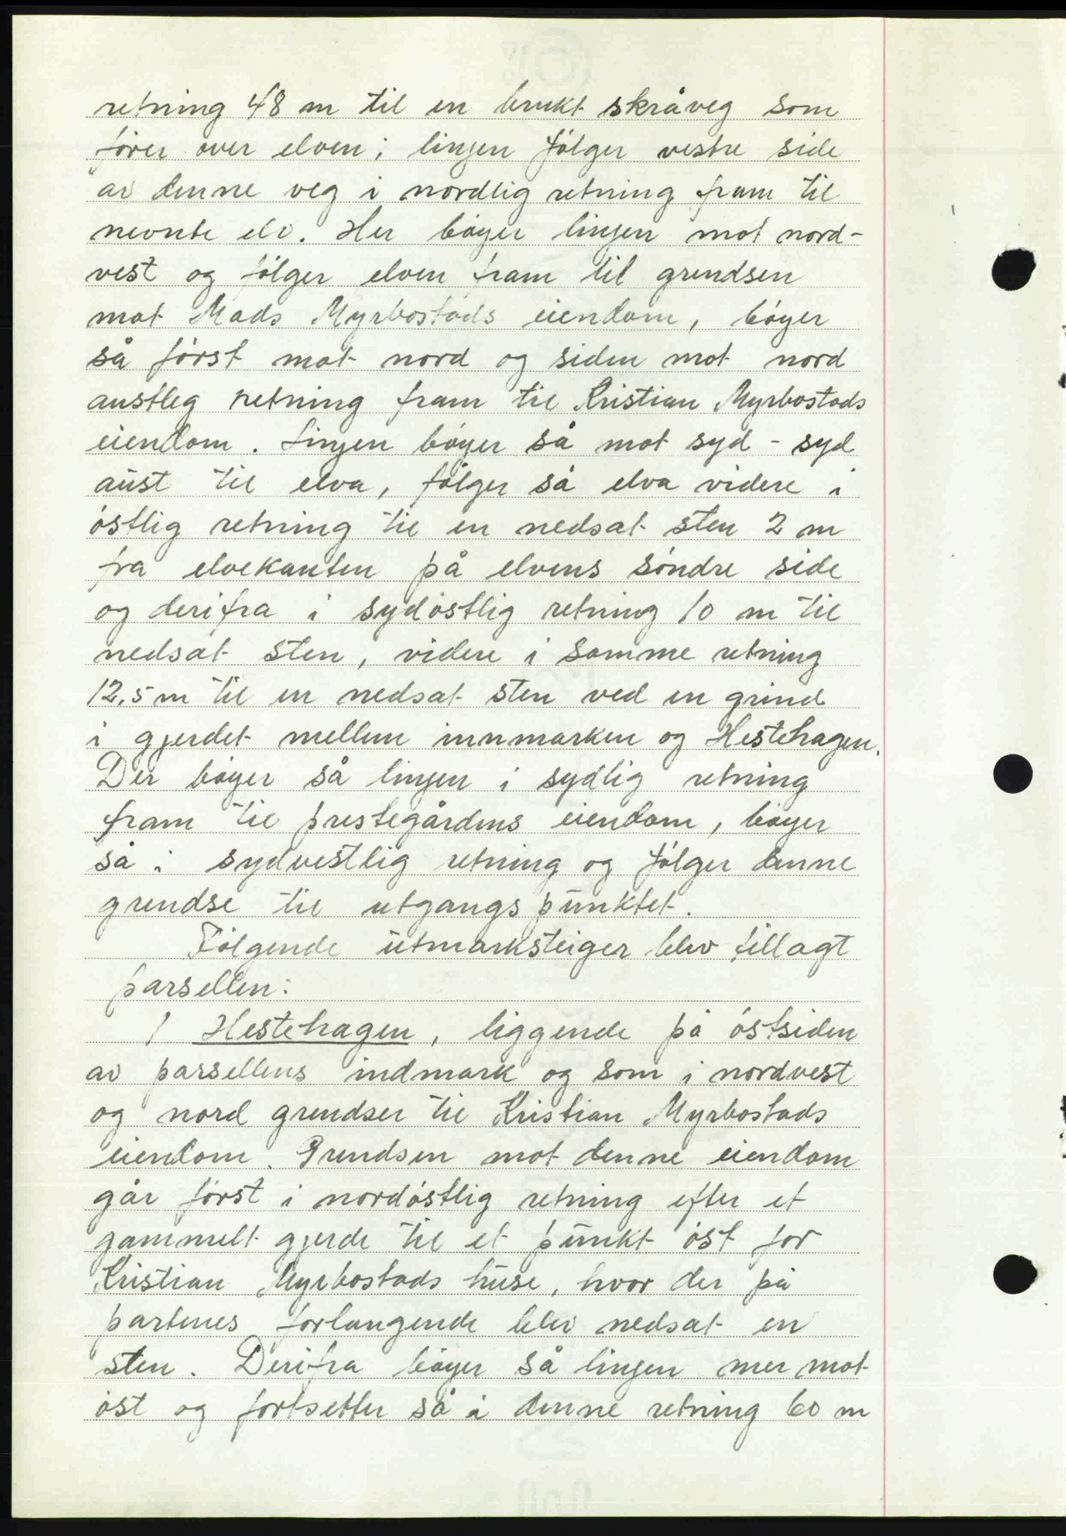 retning 48 m til en brukt skråveg som
fører over elven; linjen følger vestre side
av denne veg i nordlig retning fram til
nevnte elv. Her bøyer linjen mot nord-
vest og følger elven fram til grendsen
mot Mads Myrbostads eiendom, bøyer
så først mot nord og siden mot nord
austleg retning fram til Kristian Myrbostads
eiendom. Linjen bøyer så mot syd - syd
aust til elva, følger så elva videre i
østlig retning til en nedsat sten 2 m
fra elvekanten på elvens søndre side
og derifra i sydøstlig retning 10 m til
nedsat sten, videre i samme retning
12,5 m til en nedsat sten ved en grind
i gjerdet mellem innmarken og Hestehagen.
Der bøyer så linjen i sydlig retning
fram til prestegårdens eiendom, bøyer
så i sydvestlig retning og følger denne
grendse til utgangspunktet.
Følgende utmarksteiger blev tillagt
parsellen:
1 Hestehagen, liggende på østsiden
av parsellens indmark og som i nordvest
og nord grendser til Kristian Myrbostads
eiendom. Grendsen mot denne eiendom
går først i nordøstlig retning efter et
gammelt gjerde til et punkt øst for
Kristian Myrbostads huse, hvor der på
partenes forlangende blev nedsat en
sten. Derifra bøyer så linjen mer mot
øst og fortsetter så i denne retning 60 m